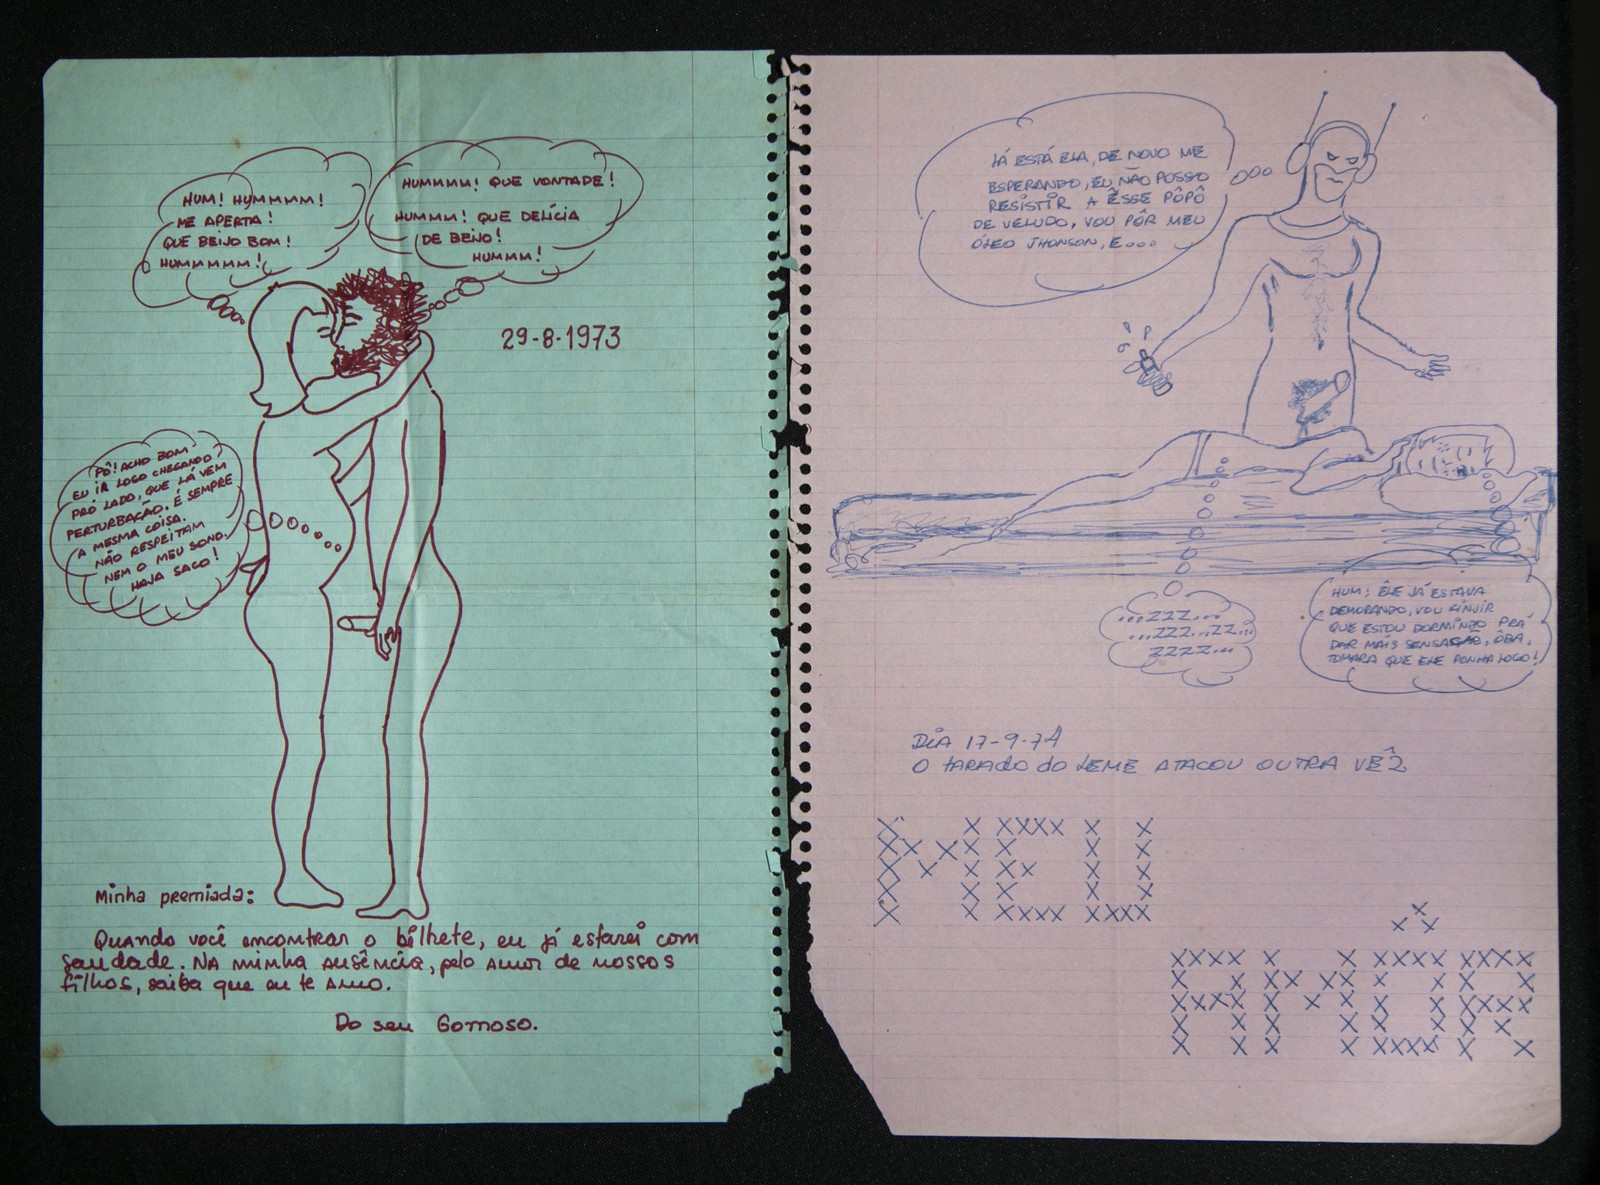 HUM! HUMMMMM!
ME APERTA!
QUE BEIJO BOM!
HUMMMMM!
HUMMMM! QUE VONTADE!
HUMMM! QUE DELÍCIA
DE BEIJO!
HUMMM!
29-8-1973
PÔ! ACHO BOM
EU IR LOGO CHEGANDO
PRÓ LADO, QUE LÁ VEM
PERTURBAÇÃO. É SEMPRE
A MESMA COISA.
NÃO RESPEITAM
NEM O MEU SONO.
HAJA SACO!
Minha premiada:
Quando você encontrar o bilhete, eu já estarei com
saudade. Na minha ausência, pelo amor de nossos
filhos, saiba que eu te amo.
Do seu Gomoso.
LÁ ESTÁ ELA, DE NOVO ME
ESPERANDO, EU NÃO POSSO
RESISTIR A ÊSSE PÔPÔ
DE VELUDO, VOU PÔR MEU
ÓLEO JHONSON, E...
...ZZZ...
...ZZZ...ZZ...
ZZZZ...
HUM! ÊLE JÁ ESTAVA
DEMORANDO, VOU FINJIR
QUE ESTOU DORMINDO PRÁ
DAR MAIS SENSAÇÃO, ÔBA,
TOMARA QUE ELE PONHA LOGO!
DIA 17-9-74
O TARADO DO LEME ATACOU OUTRA VÊZ
MEU
AMÔR